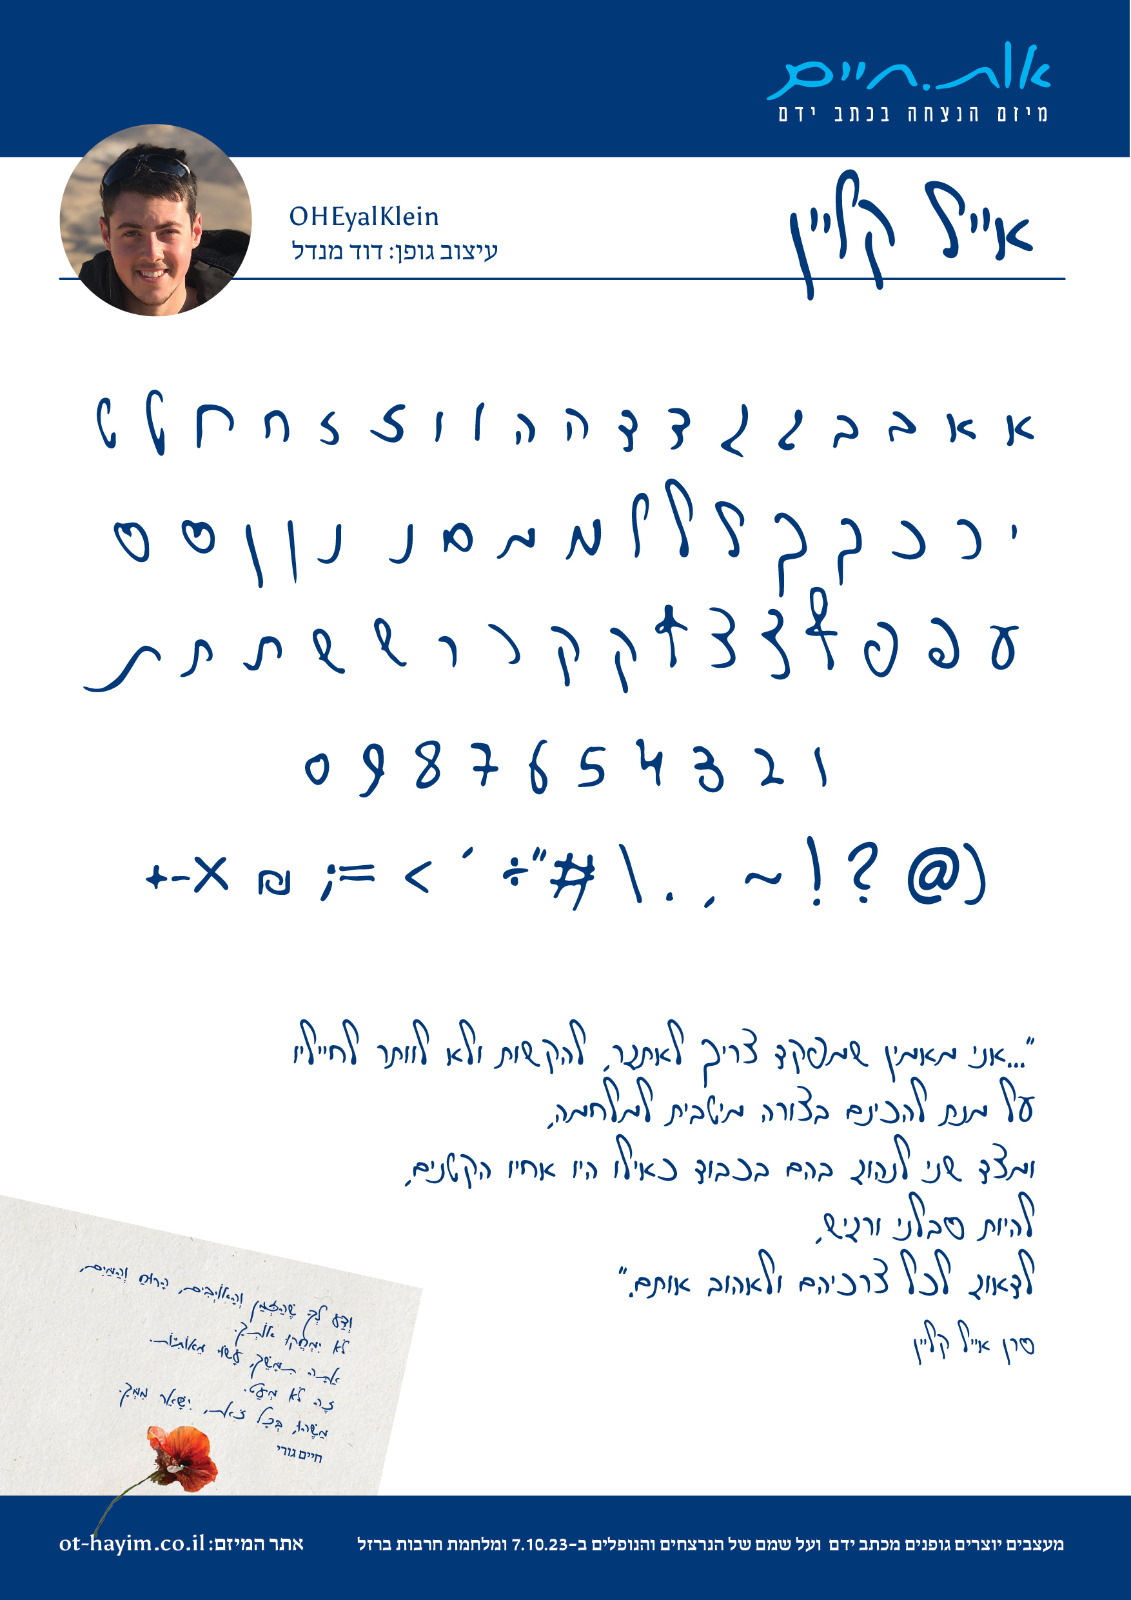 אות.חיים
מיזם הנצחה בכתב ידם
אייל קליין
OHEyalKlein
עיצוב גופן: דוד מנדל
א א ב ב ג ג ד ד ה ה ו ו ז ז ח ח ט ט
י ר כ כ ך ך ל ל ל מ מ ם נ נ ן ן ס ס
ע פ פ ף צ צ ף ק ק ר ר ש ש ת ת ת
1 2 3 4 5 6 7 8 9 0
( @ ? ! ~ , . \ # " ÷ ´ < = ; ₪ X - +
"...אני מאמין שמפקד צריך לאתגר, להקשות ולא לוותר לחייליו
על מנת להכינם בצורה מיטבית למלחמה,
ומצד שני לנהוג בהם בכבוד כאילו היו אחיו הקטנים,
להיות סבלני ורגיש,
לדאוג לכל צרכיהם ולאהוב אותם."
סרן אייל קליין
וְדַע לְךָ שֶׁהַזְּמַן וְהָאוֹיְבִים, הָרוּחַ וְהַמַּיִם,
לֹא יִמְחֲקוּ אוֹתְךָ.
אַתָּה תִּמָּשֵׁךְ, עָשׂוּי מֵאוֹתִיּוֹת.
זֶה לֹא מְעַט.
מַשֶּׁהוּ, בְּכָל זֹאת, יִשָּׁאֵר מִמְּךָ.
חיים גורי
מעצבים יוצרים גופנים מכתב ידם ועל שמם של הנרצחים והנופלים ב-7.10.23 ומלחמת חרבות ברזל
אתר המיזם: ot-hayim.co.il